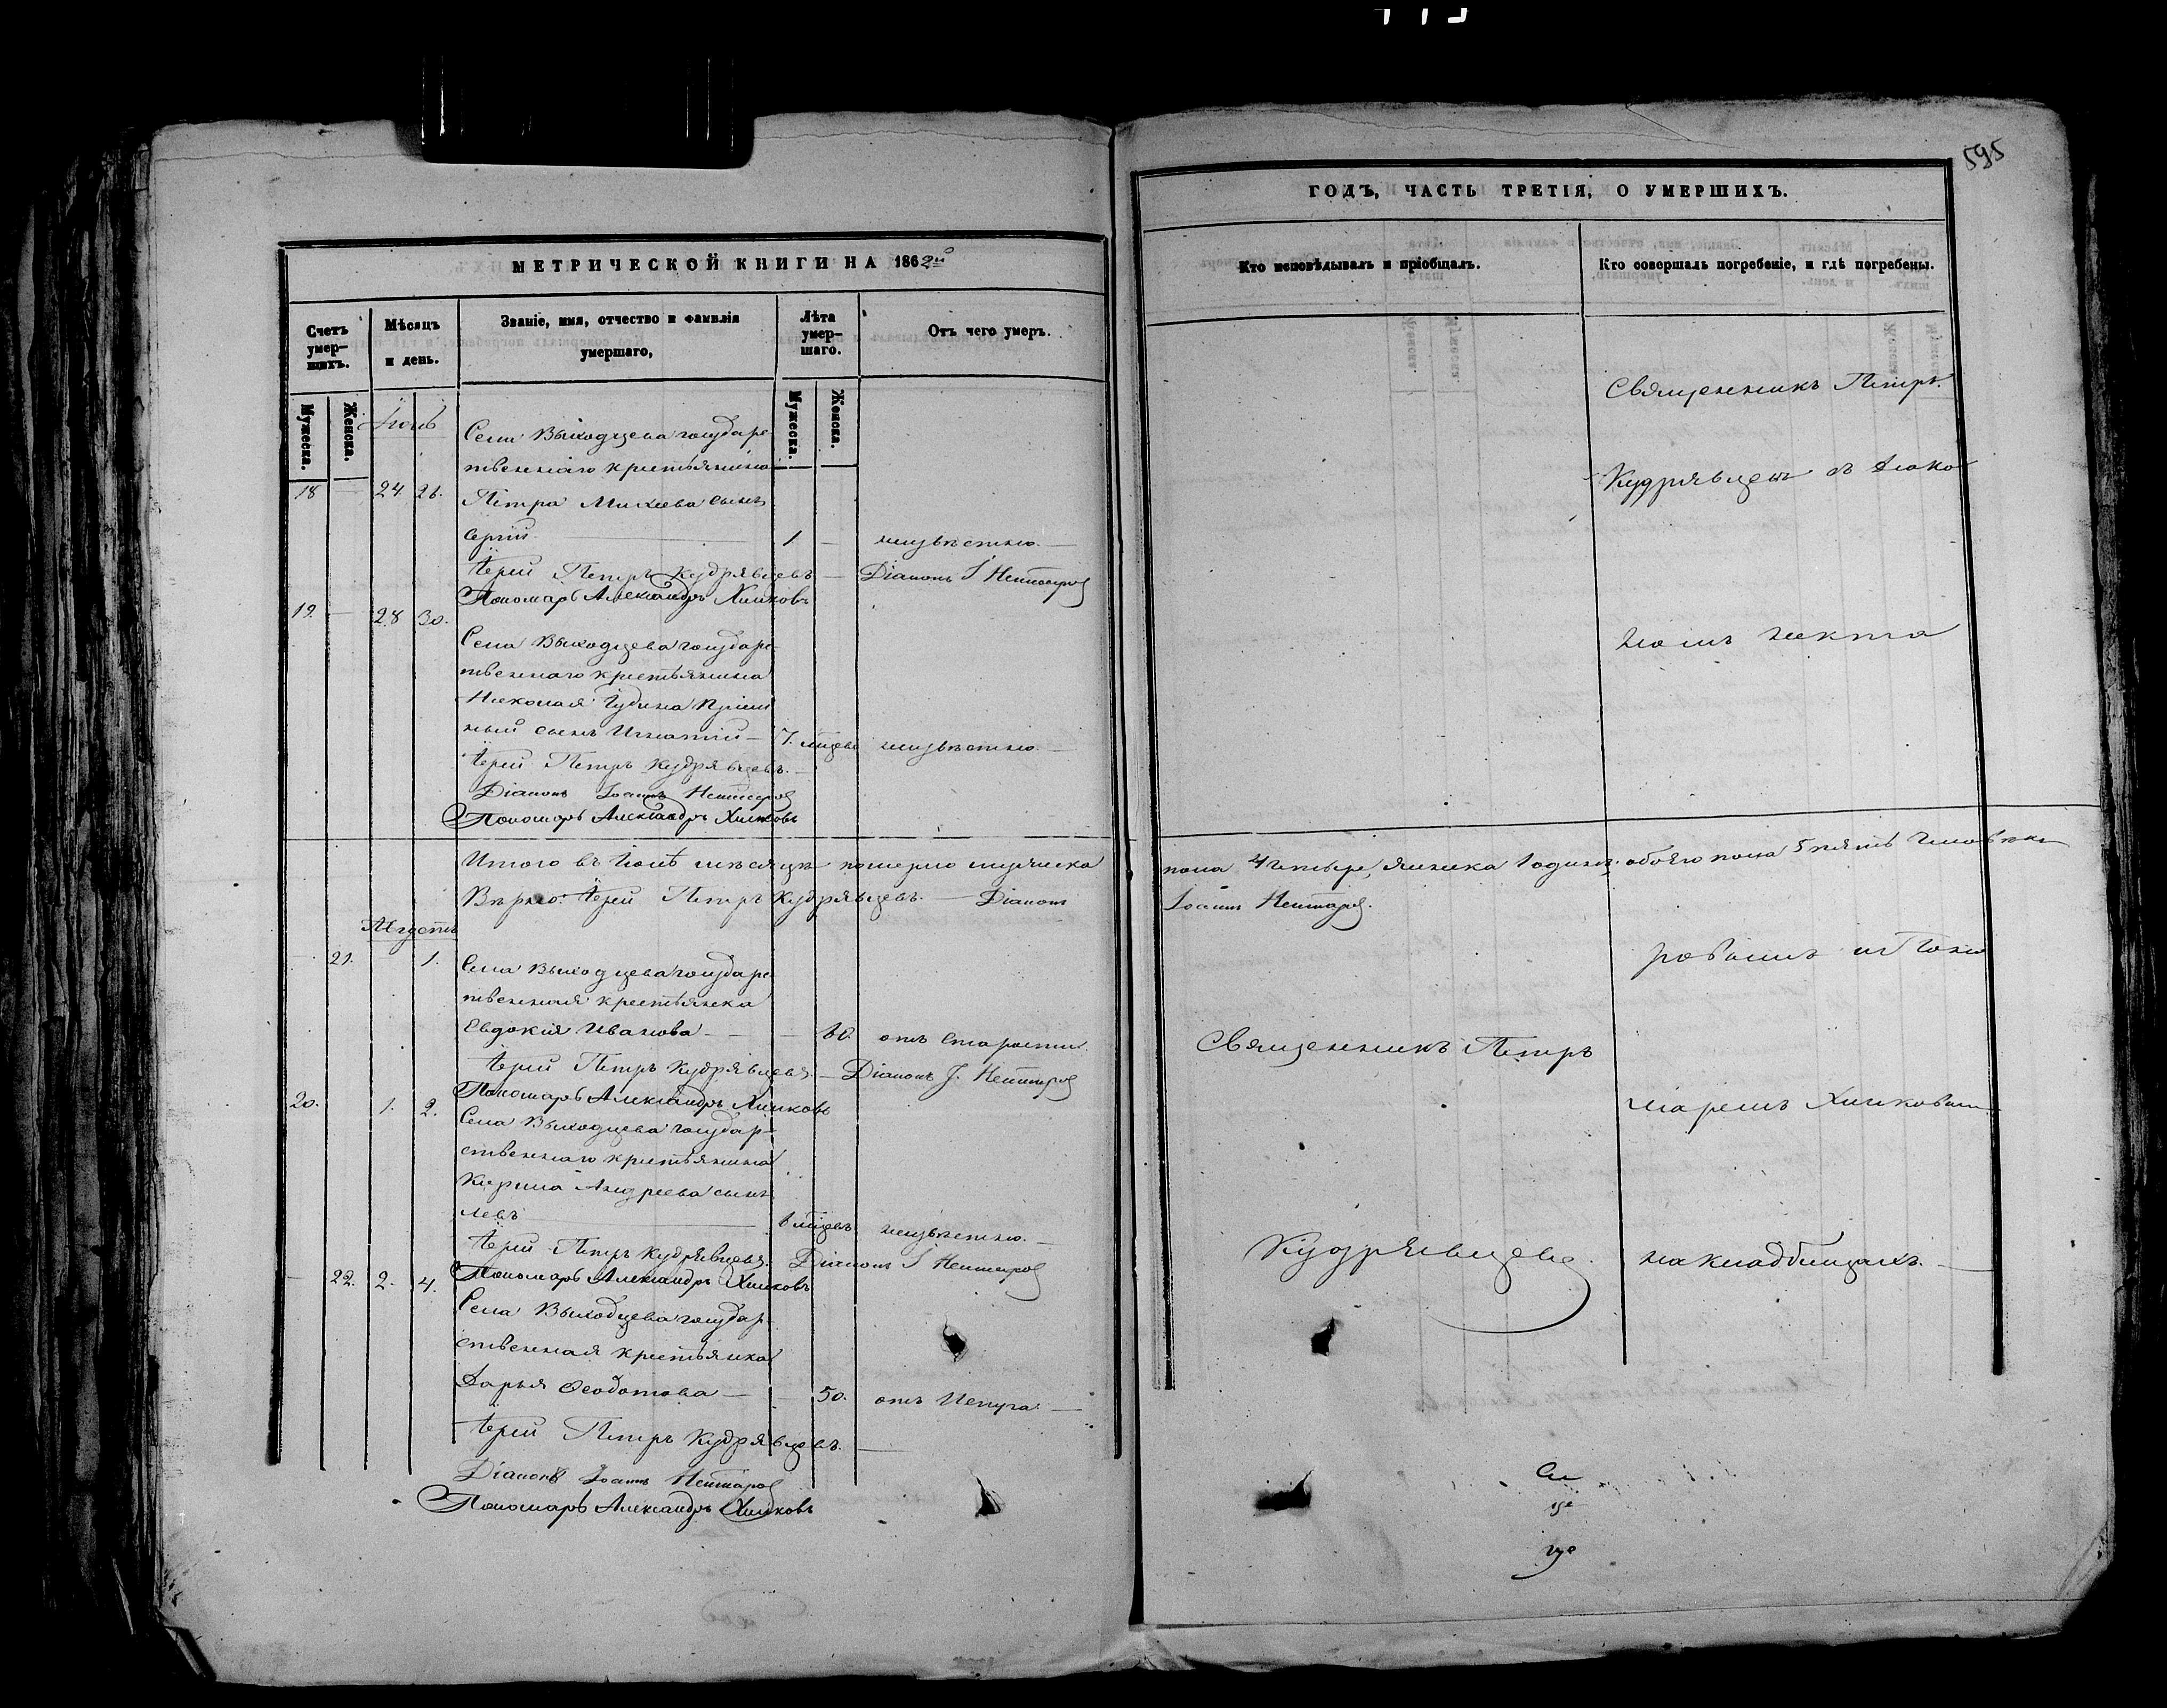 595
МЕТРИЧЕСКОЙ КНИГИ НА 1862й
Счетъ умер-шихъ.
Мѣсяцъ и день.
Званіе, имя, отчество и фамилія умершаго,
Лѣта умер-шаго.
Отъ чего умеръ.
Мужеска.
Женска.
Мужеска.
Женска.
Іюль
Села Выходцева государ
ственнаго крестьянина
18 — 24. 26. Петра Михеева сынъ
Сергій 1 — неизвѣстно.
Іерей Петръ Кудрявцевъ — Діаконъ І
Пономарь Александръ Хижковъ
19. — 28 30.
Села Выходцева государ-
ственнаго крестьянина
Николая Гудина пріем
ный сынъ Игнатій — 7. мѣсяц неизвѣстно. —
Іерей Петръ Кудрявцевъ. —
Діаконъ Іоаннъ
Пономарь Александръ Хижковъ
Итого въ Іюлѣ мѣсяцѣ померло мужеска
Вѣрно: Іерей Петръ Кудрявцевъ. — Діаконъ
Августъ
— 21. 1. Села Выходцева государ
ственная крестьянка
Евдокія Иванова — — 60. отъ старости.
Іерей Петръ Кудрявцевъ. — Діаконъ І.
Пономарь Александръ Хижковъ
20. 1. 2.
Села Выходцева государ-
ственнаго крестьянина
Кирила Андреева сынъ
Левъ 6 мѣсяцевъ неизвѣстно. —
Іерей Петръ Кудрявцевъ. Діаконъ І
Пономарь Александръ Хижковъ
— 22. 2. 4.
Села Выходцева государ-
ственная крестьянка
Дарья Ѳеодотова — — 50. отъ испуга. —
Іерей Петръ Кудрявцевъ. —
Діаконъ Іоаннъ
Пономарь Александръ Хижковъ
ГОДЪ, ЧАСТЬ ТРЕТІЯ, О УМЕРШИХЪ.
Кто исповѣдывалъ и пріобщалъ.
Кто совершалъ погребеніе, и гдѣ погребены.
Священникъ Петръ
Кудрявцевъ съ діако
номъ Некта
пола 4 четыре, женска 1 одинъ; обоего пола 5 пять человѣкъ
Іоаннъ
ровымъ и Поно
Священникъ Петръ
маремъ Хижковым
Кудрявцевъ.
на кладбищахъ. —